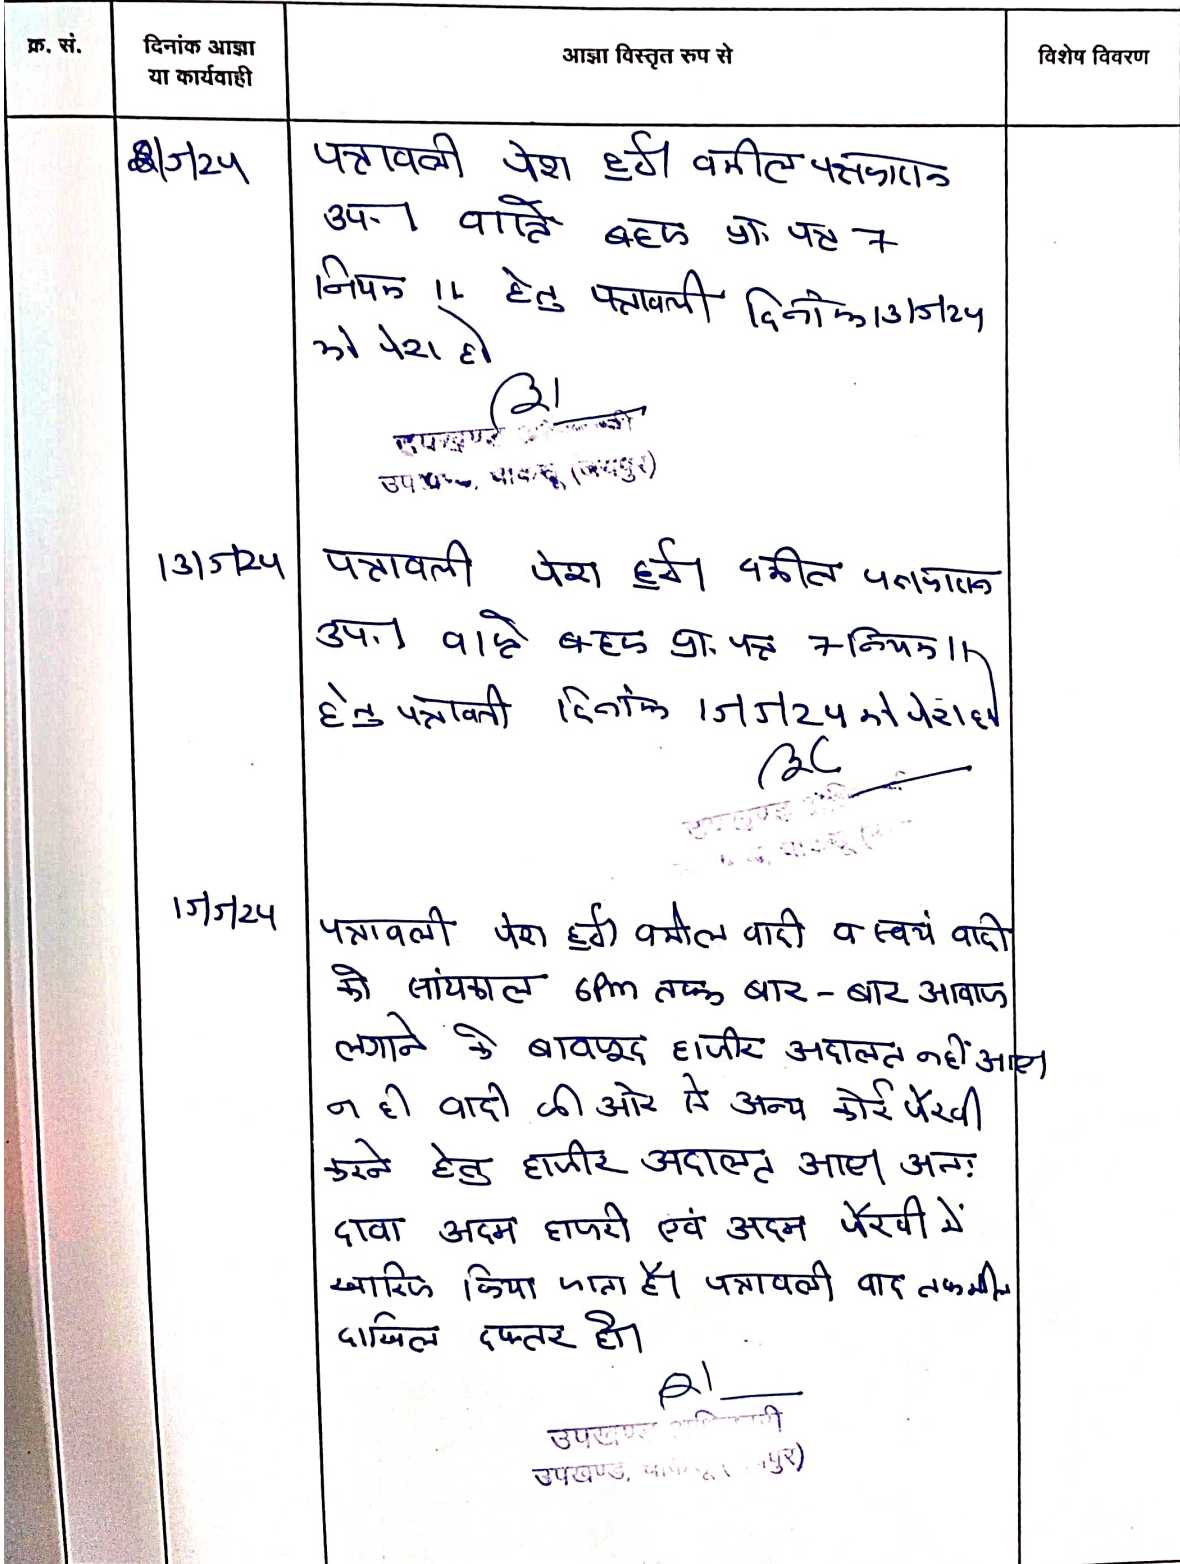 क्र. सं.
दिनांक आज्ञा
या कार्यवाही
आज्ञा विस्तृत रुप से
विशेष विवरण
8/5/24
पत्रावली पेश हुई। वकील पक्षकारान
उप.। वास्ते बहस प्रा. पत्र 7
नियम 11 हेतु पत्रावली दिनांक 13/5/24
को पेश हो
उपखण्ड अधिकारी
उपखण्ड, चाकसू (जयपुर)
13/5/24
पत्रावली पेश हुई। वकील पक्षकारान
उप.। वास्ते बहस प्रा. पत्र 7 नियम 11
हेतु पत्रावली दिनांक 15/5/24 को पेश हो
उपखण्ड
चाकसू
15/5/24
पत्रावली पेश हुई। वकील वादी व स्वयं वादी
को सांयकाल 6Pm तक बार - बार आवाज
लगाने के बावजूद हाजीर अदालत नहीं आए।
न ही वादी की ओर से अन्य कोई पैरवी
करने हेतु हाजीर अदालत आए। अतः
दावा अदम हाजरी एवं अदम पैरवी में
खारिज किया जाता है। पत्रावली वाद तकमील
दाखिल दफ्तर हो।
उपखण्ड अधिकारी
उपखण्ड, चाकसू (जयपुर)